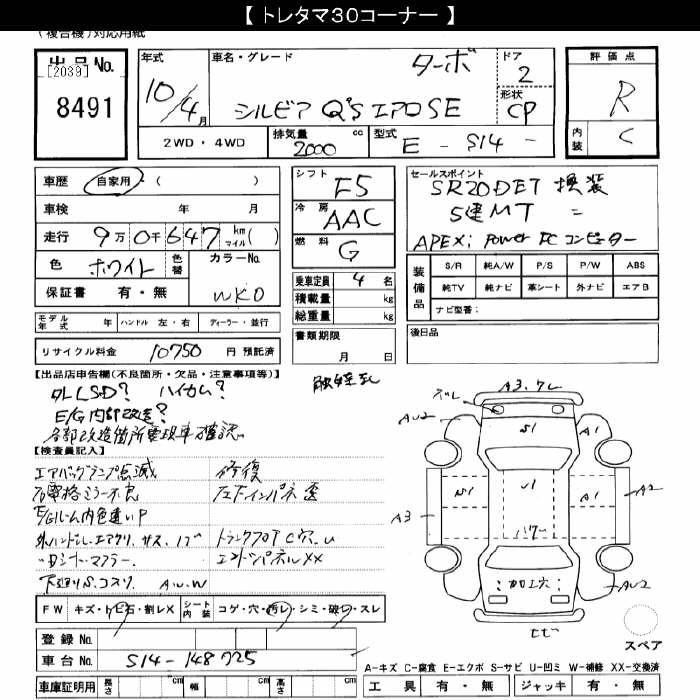 【 トレタマ30コーナー 】
(複合機)対応用紙
出品 No.
[2039]
8491
年式
10/4月
車名・グレード
ターボ
シルビア Q'S エアロSE
ドア
2
形状
CP
評価点
R
内装
C
2WD・4WD
排気量
2000
cc
型式
E - S14 -
車歴
自家用・( )
車検
年
月
走行
9万0千647
km
マイル( )
色
ホワイト
色替
カラーNo.
WK0
保証書
有・無
シフト
F5
冷房
AAC
燃料
G
乗車定員
4名
積載量
kg
総重量
kg
セールスポイント
SR20DET 換装
5速MT
APEXi パワーFCコンピューター
装備品
S/R 純A/W P/S P/W ABS
純TV 純ナビ 革シート 外ナビ エアB
ナビ型番:
モデル年式
年
ハンドル 左・右
ディーラー・並行
書類期限
月 日
後日品
リサイクル料金
10750
円 預託済
【出品店申告欄(不良箇所・欠品・注意事項等)】
触媒无
LSD? ハイカム?
E/G内部改造?
各部改造箇所要現車確認
【検査員記入】
エアバッグランプ点滅
修復
電格ミラー不良
E/Gルーム内色違いP
トランクフロアC穴、U
マフラー
エンドパネルXX
下廻りS.コスリ
AU.W
FW
キズ・トビ石・割レX
シート内装
コゲ・穴・汚レ・シミ・破レ・スレ
登録 No.
車台 No.
S14-148725
車庫証明用
長さ
cm
幅
cm
高さ
cm
A3.
AU2
S1
A1
U1
A1
A2
A3
AU2
加工穴
スペア
A-キズ C-腐食 E-エクボ S-サビ U-凹ミ W-補修 XX-交換済
工具
有・無
ジャッキ
有・無